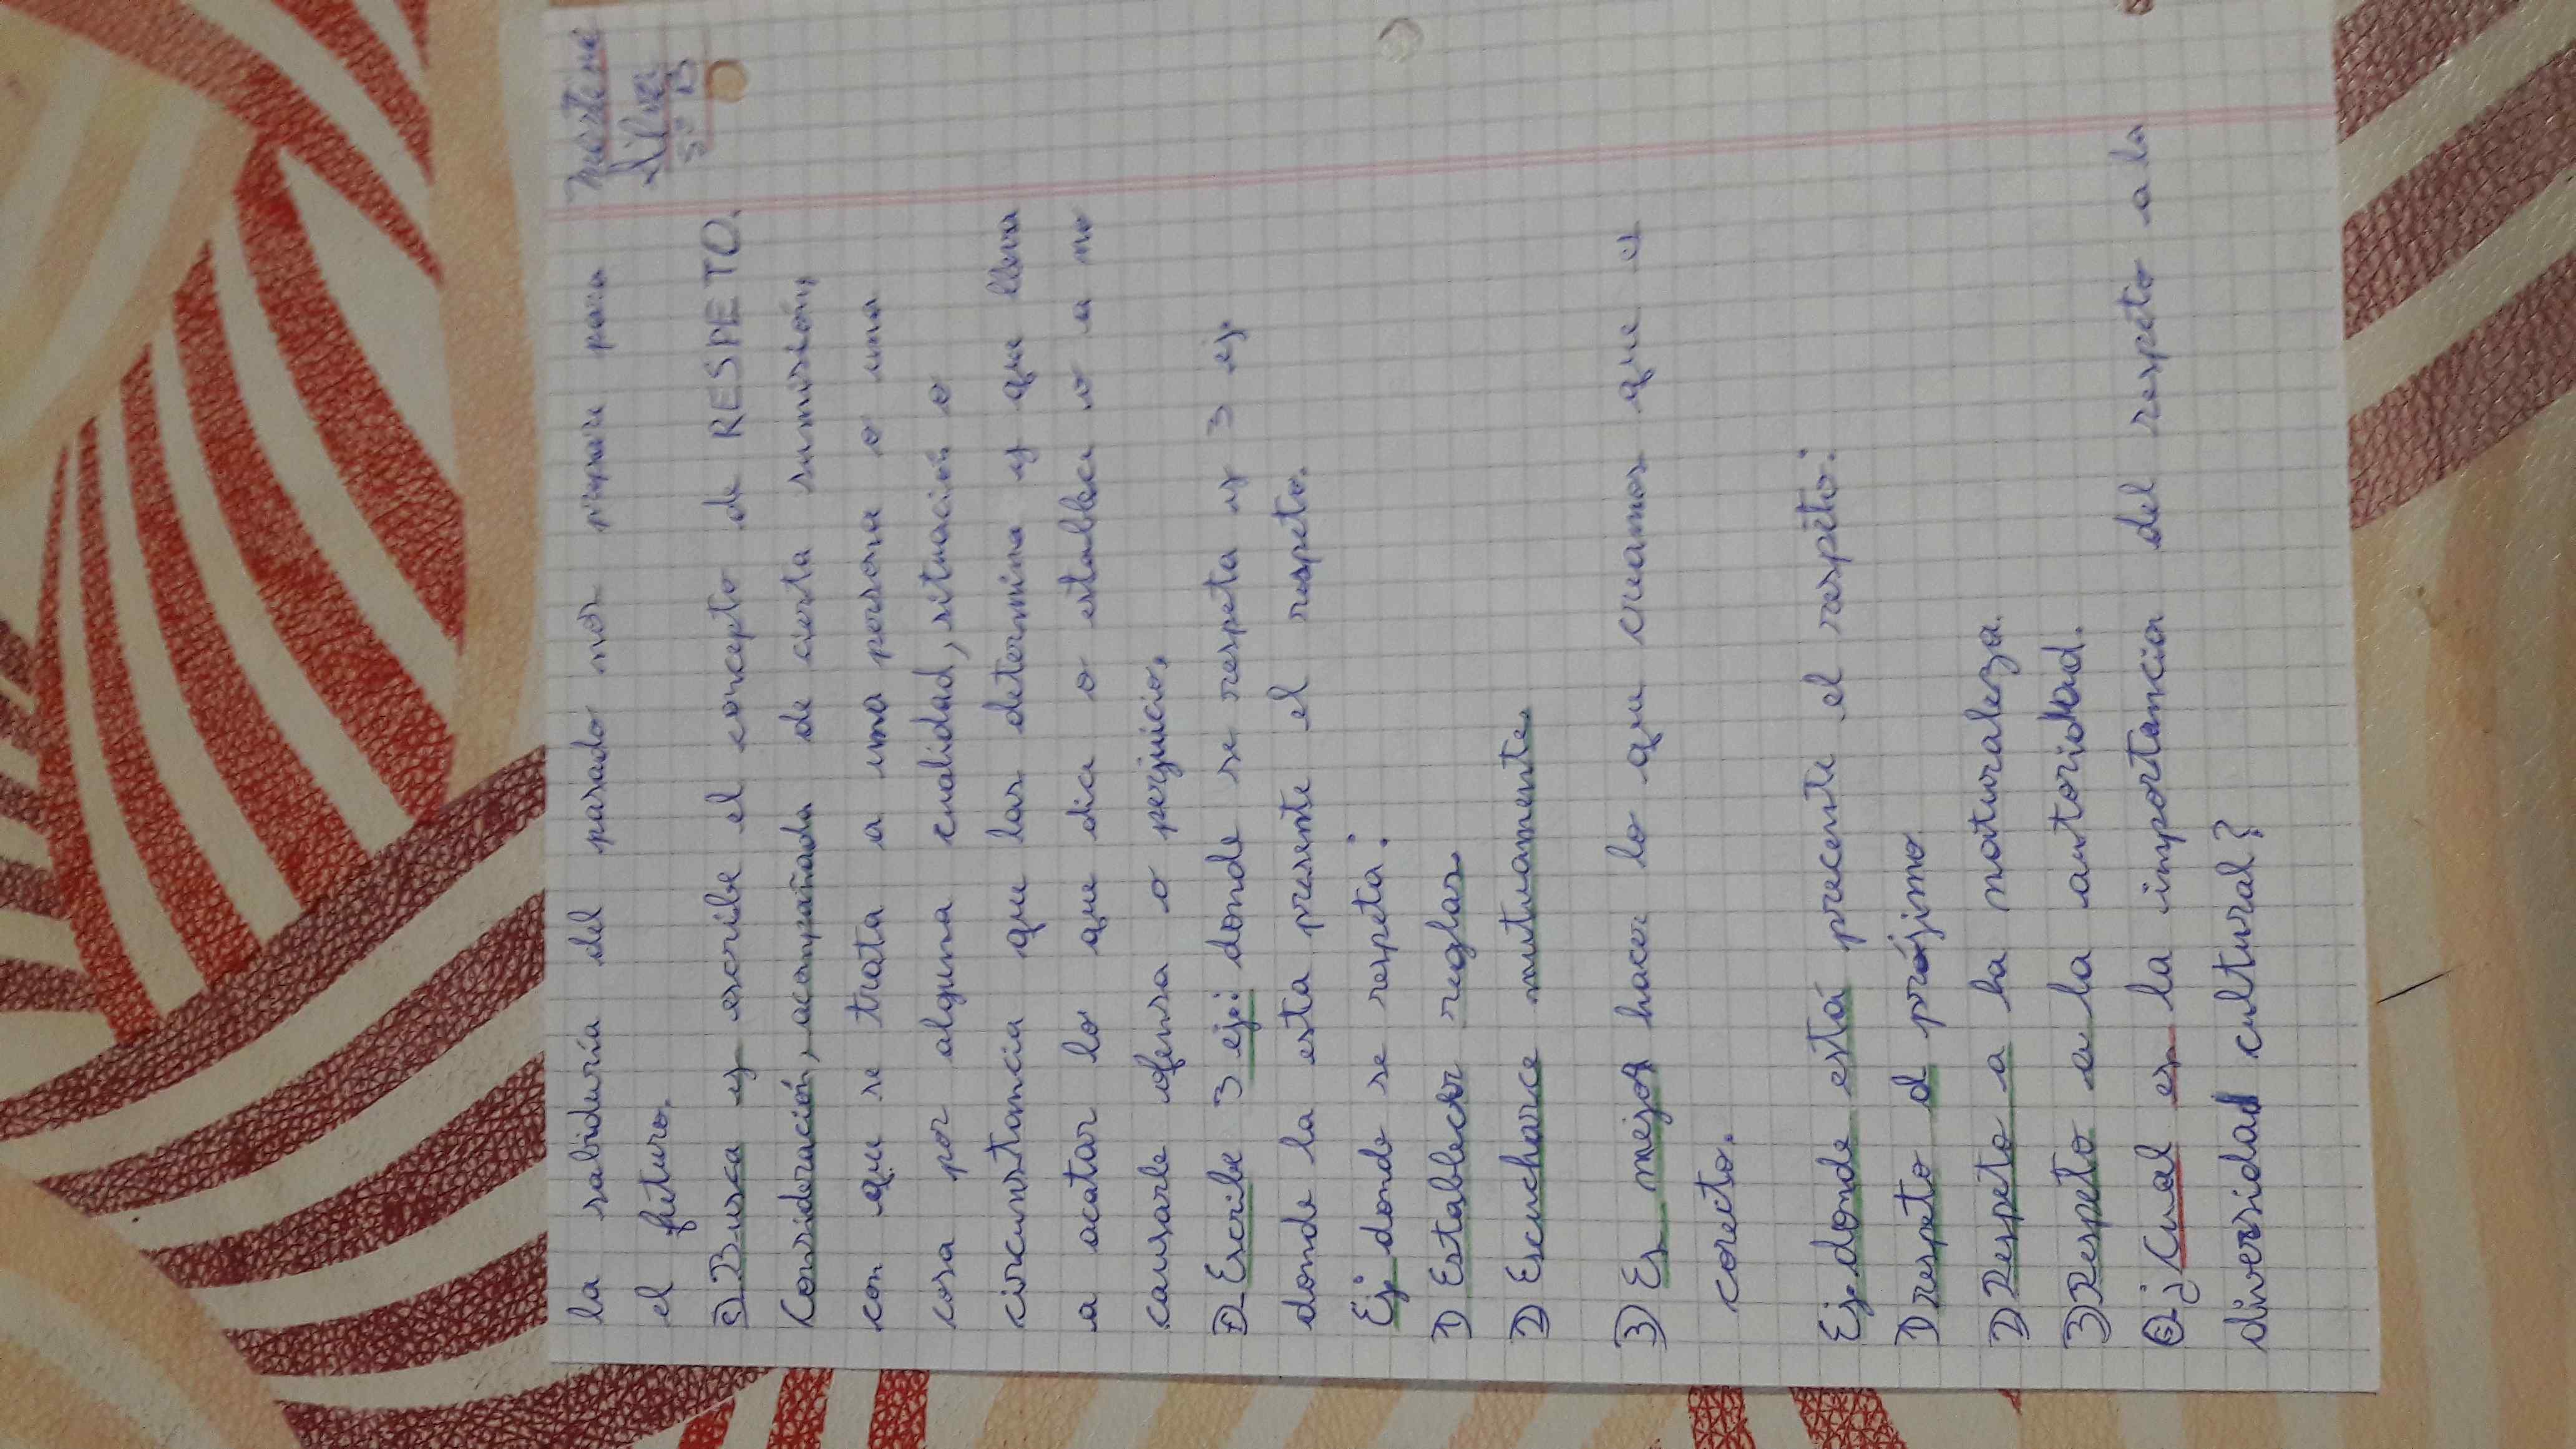 Martiné
Silva
5º B
la sabiduría del pasado nos prepare para
el futuro.
C) Busca y escribe el concepto de RESPETO.
Consideración, acompañada de cierta sumosión,
con que se trata a una persona o una
cosa por alguna cualidad, situación o
circunstancia que las determina y que lleva
a acatar lo que dice o establece o a no
causarle ofensa o perjuicio.
D) Escribe 3 ej: donde se respeta y 3 ej
donde la esta presente el respeto.
Ej: donde se respeta:
1) Establecer reglas
2) Escucharce mutuamente.
3) Es mejor hacer lo que creamos que es
coreito.
Ej donde está precente el respéto:
1) respeto al prójimo
2) Respeto a la naturaleza.
3) Respeto a la autoridad.
E) ¿Cual es la importancia del respeto a la
diversidad cultural?